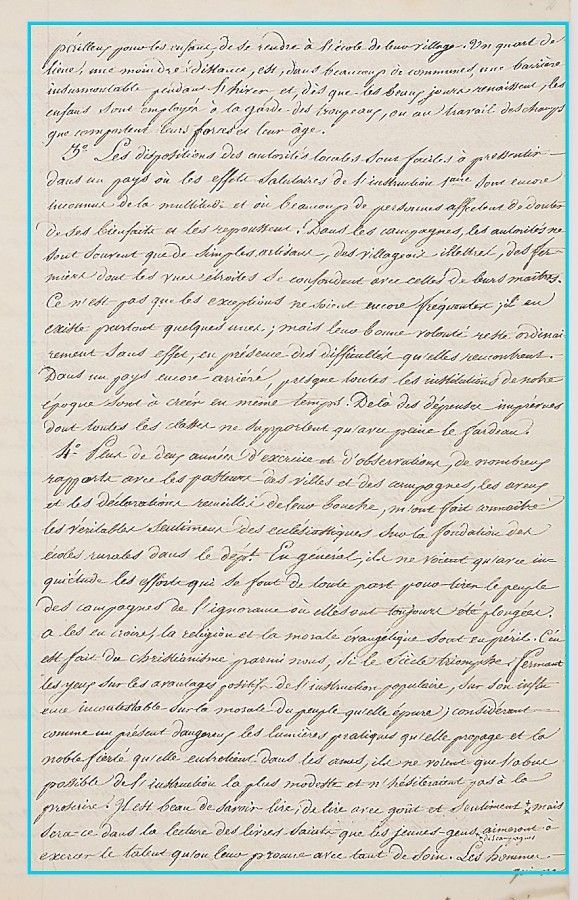 périlleux pour les enfans, de se rendre à l'école de leur village. Un quart de
lieue, une moindre distance, est, dans beaucoup de communes, une barrière
insurmontable pendant l'hiver et dès que les beaux jours renaissent, les
enfans sont employés à la garde des troupeaux, ou au travail des champs
que comportent leurs forces et leur age.
3.° Les dispositions des autorités locales sont faciles à pressentir
dans un pays où les effets salutaires de l'instruction sont encore
inconnus de la multitude et où beaucoup de personnes affectent de douter
de ses bienfaits et les repoussent. Dans les campagnes, les autorités ne
sont souvent que de simples artisans, des villageois illettrés, des fer-
miers dont les vues étroites se confondent avec celles de leurs maîtres.
Ce n'est pas que les exceptions ne soient encore fréquentes ; il en
existe partout quelques unes ; mais leur bonne volonté reste ordinai
rement sans effet, en présence des difficultés qu'elles rencontrent.
Dans un pays encore arriéré, presque toutes les institutions de notre
époque sont à créer en même temps. De là des dépenses imprévues
dont toutes les classes ne supportent qu'avec peine le fardeau.
4.° Plus de deux années d'exercice et d'observations, de nombreux
rapports avec les pasteurs des villes et des campagnes, les aveux
et les déclarations recueillis de leur bouche, m'ont fait connaître
les véritables sentimens des ecclésiastiques sur la fondation des
écoles rurales dans le dépt. En général, ils ne voient qu'avec in-
quiétude les efforts qui se font de toute part pour tirer le peuple
des campagnes de l'ignorance où elles ont toujours été plongées.
A les en croire, la religion et la morale évangélique sont en péril. C'en
est fait du christianisme parmi nous, si le siècle triomphe. Fermant
les yeux sur les avantages positifs de l'instruction populaire, sur son influ
ence incontestable sur la morale du peuple qu'elle épure ; considérant
comme un présent dangereux les lumières pratiques qu'elle propage et la
noble fierté qu'elle entretient dans les ames, ils ne voient que l'abus
possible de l'instruction la plus modeste et n'hésiteraient pas à la
proscrire. Il est beau de savoir lire, de lire avec goût et sentiment mais
sera-ce dans la lecture des livres saints que les jeunes gens aimeront à
des campagnes
exercer le talent qu'on leur procure avec tant de soin. Les hommes